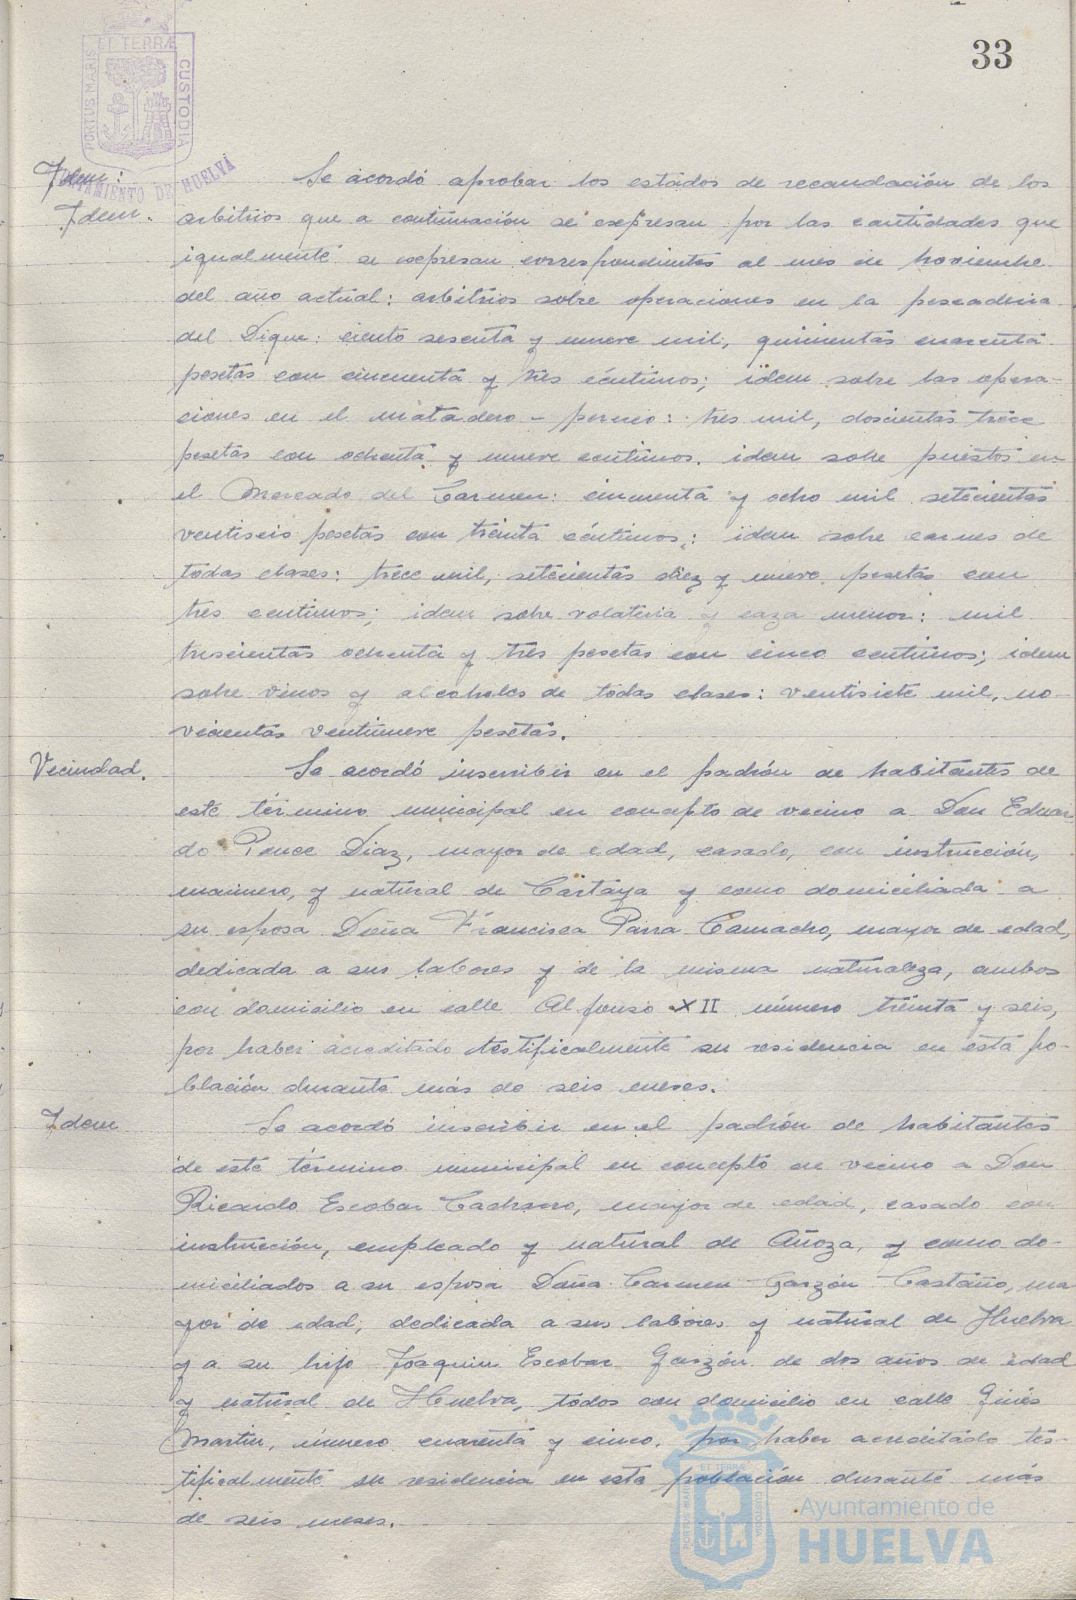 33
PORTUS MARIS ET TERRÆ CUSTODIA
AYUNTAMIENTO DE HUELVA
Idem:
Idem.
Se acordó aprobar los estados de recaudación de los
arbitrios que a continuación se expresan por las cantidades que
igualmente se expresan correspondientes al mes de noviembre
del año actual: arbitrios sobre operaciones en la pescaderia
del Dique: ciento sesenta y nueve mil, quinientas cuarenta
pesetas con cincuenta y tres céntimos; idem sobre las opera-
ciones en el matadero - porcino: tres mil, doscientas trece
pesetas con ochenta y nueve centimos. idem sobre puestos en
el Mercado del Carmen: cincuenta y ocho mil setecientas
ventiseis pesetas con treinta céntimos; idem sobre carnes de
todas clases: trece mil, setecientas diez y nueve pesetas con
tres centimos; idem sobre volateria y caza menor: mil
trescientas ochenta y tres pesetas con cinco centimos; idem
sobre vinos y alcoholes de todas clases: ventisiete mil, no-
vecientas ventinueve pesetas.
Vecindad.
Se acordó inscribir en el padrón de habitantes de
este término municipal en concepto de vecino a Don Eduar-
do Ponce Diaz, mayor de edad, casado, con instrucción,
marinero, y natural de Cartaya y como domiciliada a
su esposa Doña Francisca Parra Camacho, mayor de edad,
dedicada a sus labores y de la misma naturaleza, ambos
con domicilio en calle Alfonso XII número treinta y seis,
por haber acreditado testificalmente su residencia en esta po-
blación durante más de seis meses.
Idem
Se acordó inscribir en el padrón de habitantes
de este término municipal en concepto de vecino a Don
Ricardo Escobar, mayor de edad, casado con
instrucción, empleado y natural de y como do-
miciliados a su esposa Doña Carmen Garzón Castaño, ma
yor de edad, dedicada a sus labores y natural de Huelva
y a su hijo Joaquin Escobar Garzón de dos años de edad
y natural de Huelva, todos con domicilio en calle Ginés
Martin, número cuarenta y cinco. por haber acreditado tes-
tificalmente su residencia en esta población durante más
de seis meses.
PORTUS MARIS ET TERRÆ CUSTODIA
Ayuntamiento de
HUELVA